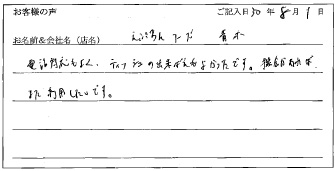 お客様の声 ご記入日 30 年 8 月 1 日
お名前&会社名(店名) えぷろんフーズ 青木
電話対応もよく、ティッシュの出来ばえもよかったです。機会があれば
また利用したいです。